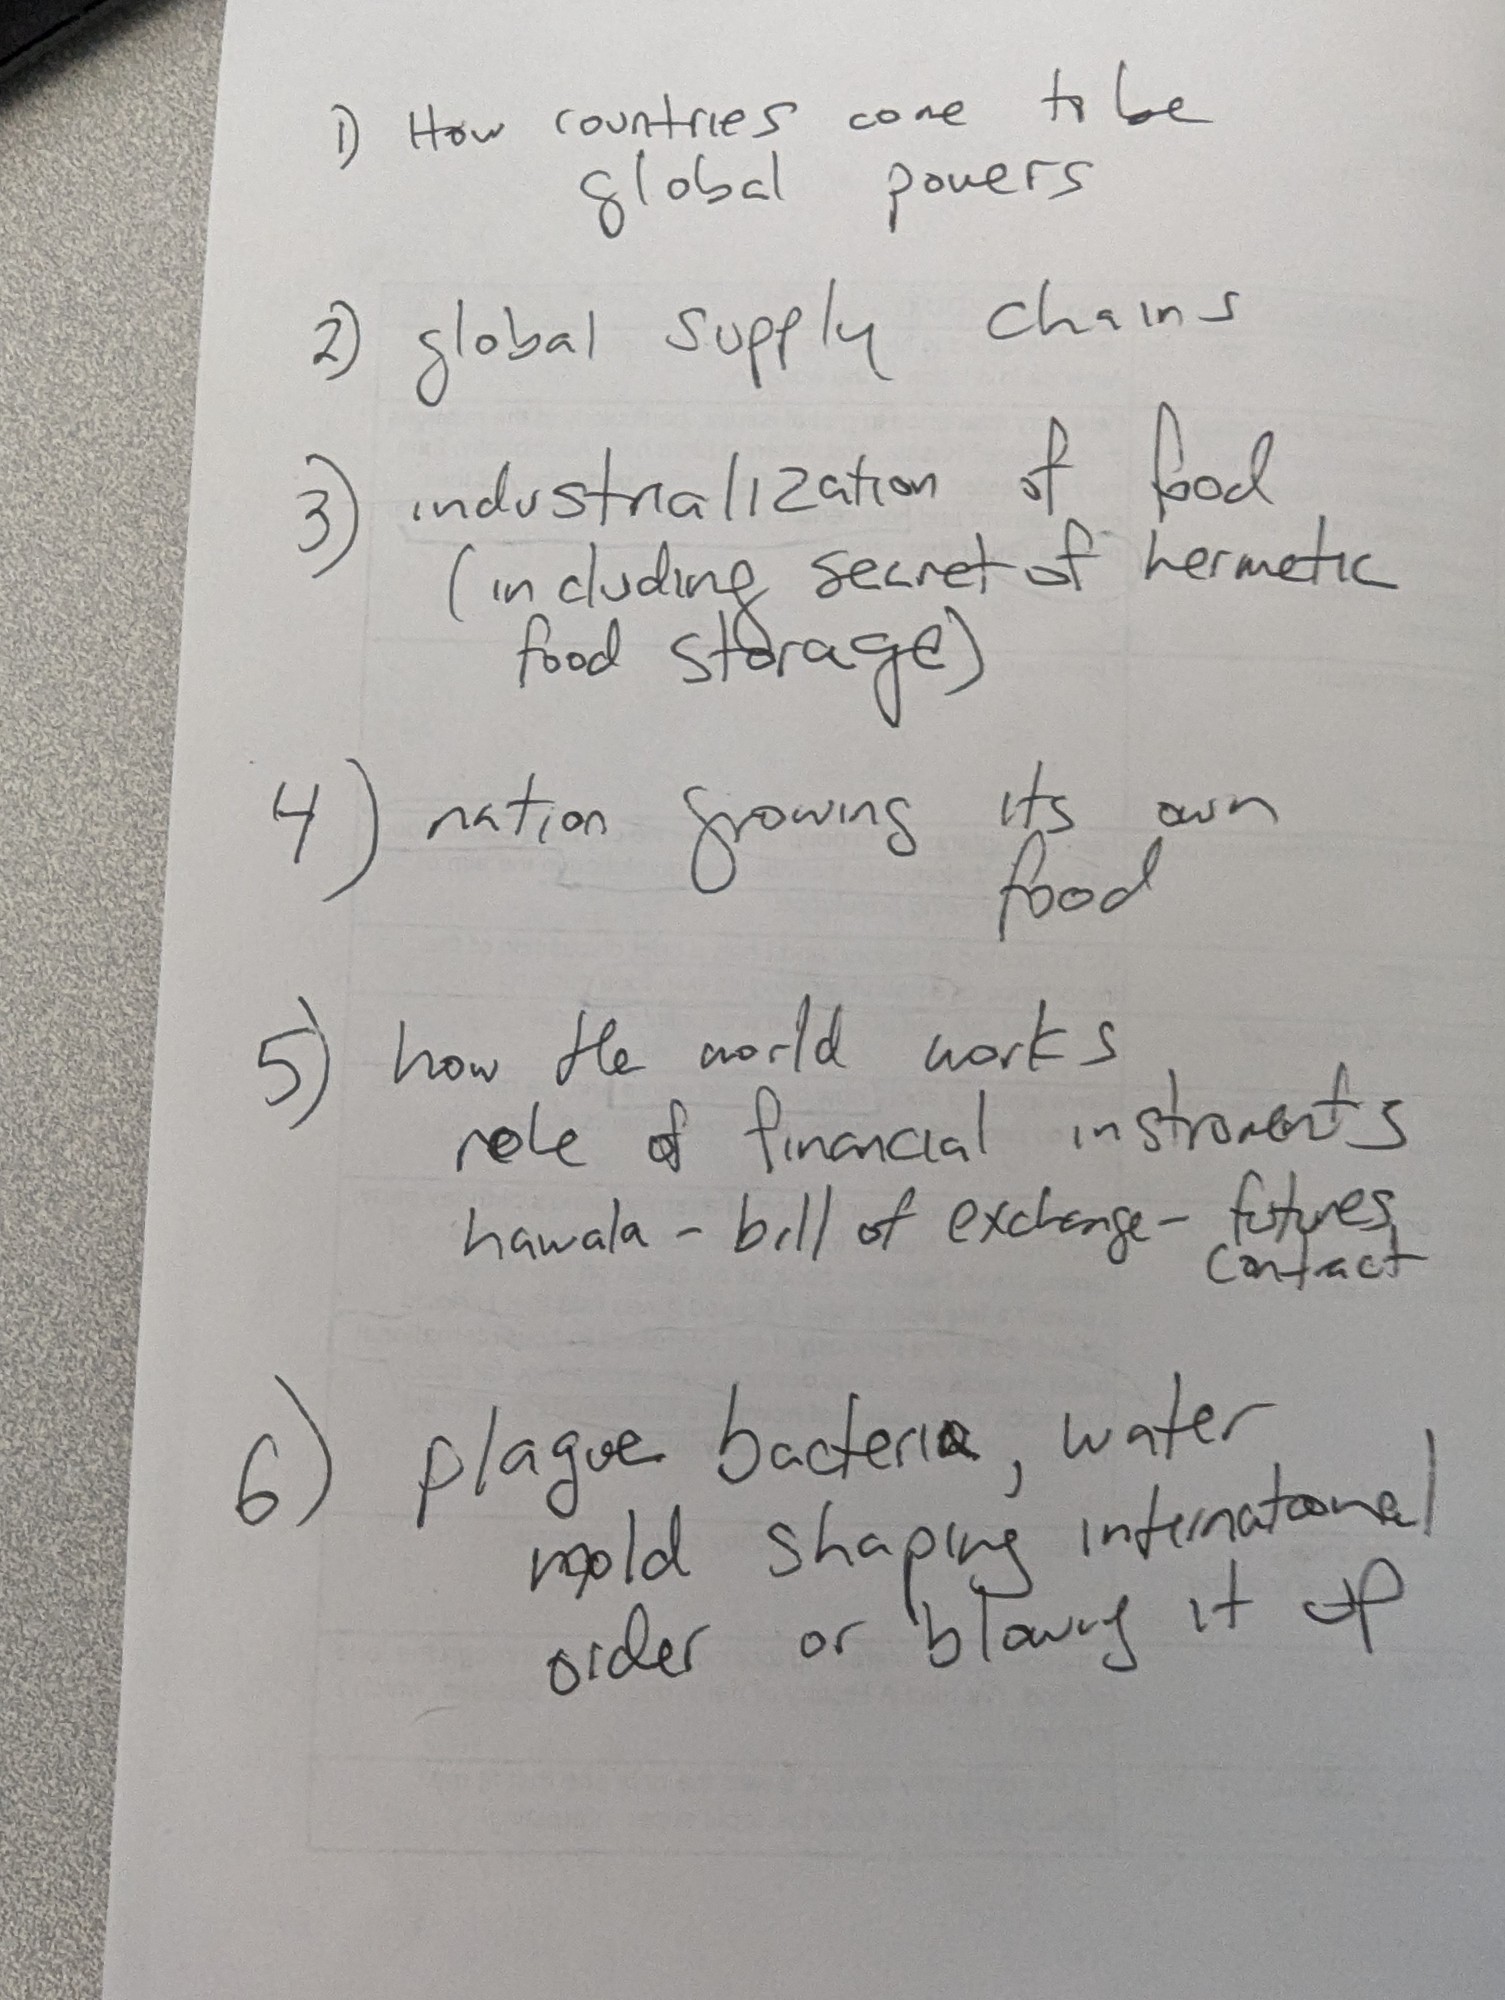 1) How countries come to be
global powers
2) global supply chains
3) industrialization of food
(including secret of hermetic
food storage)
4) nation growing its own
food
5) how the world works
role of financial instruments
hawala - bill of exchange - futures
contract
6) plague bacteria, water
mold shaping international
order or blowing it up